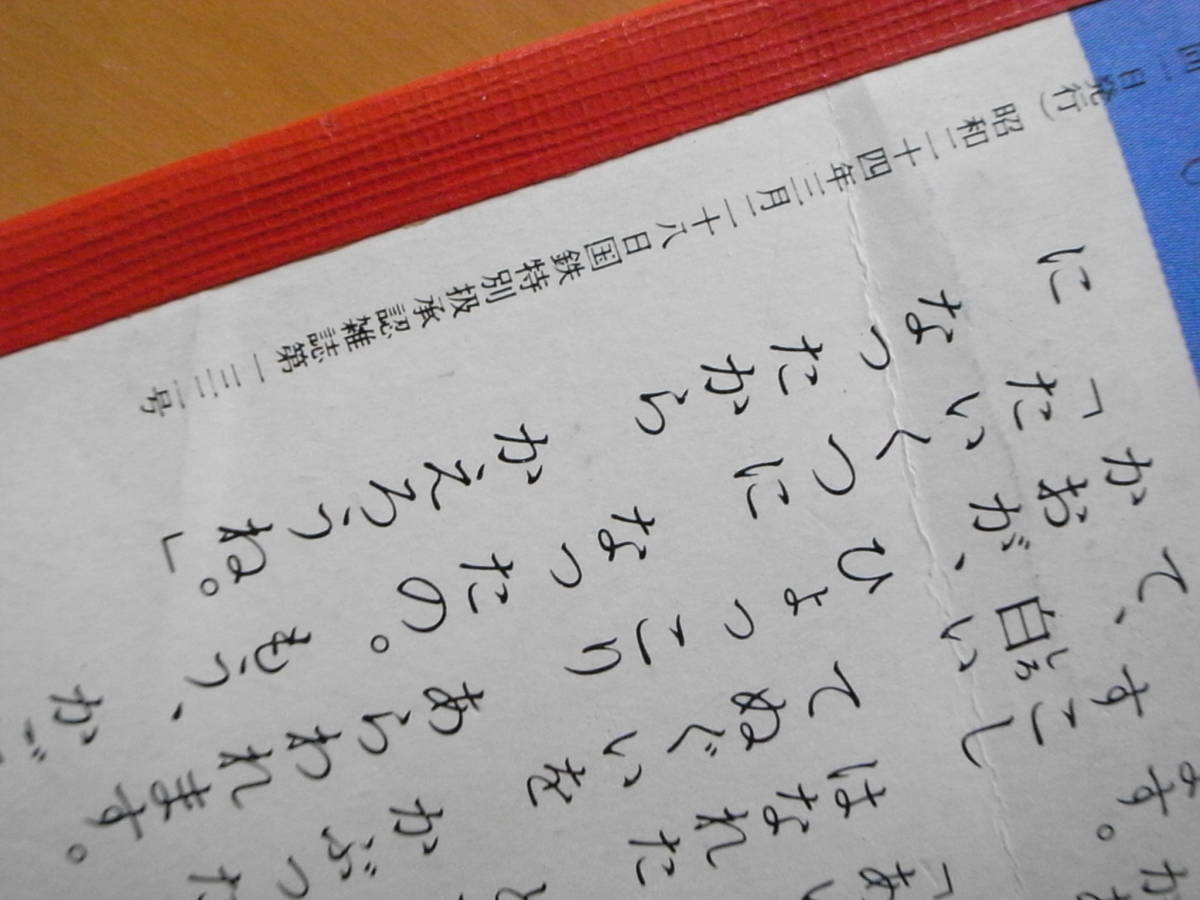 ます。 「あ
すこし はなれた と
て、白い てぬぐいを かぶった
しろ
かおが、ひょっこり あらわれます。
「たいくつに なったの。 もう、
になったから かえろうね。」
一日発行) 昭和二十四年三月二十八日国鉄特別扱承認雑誌第一三二号